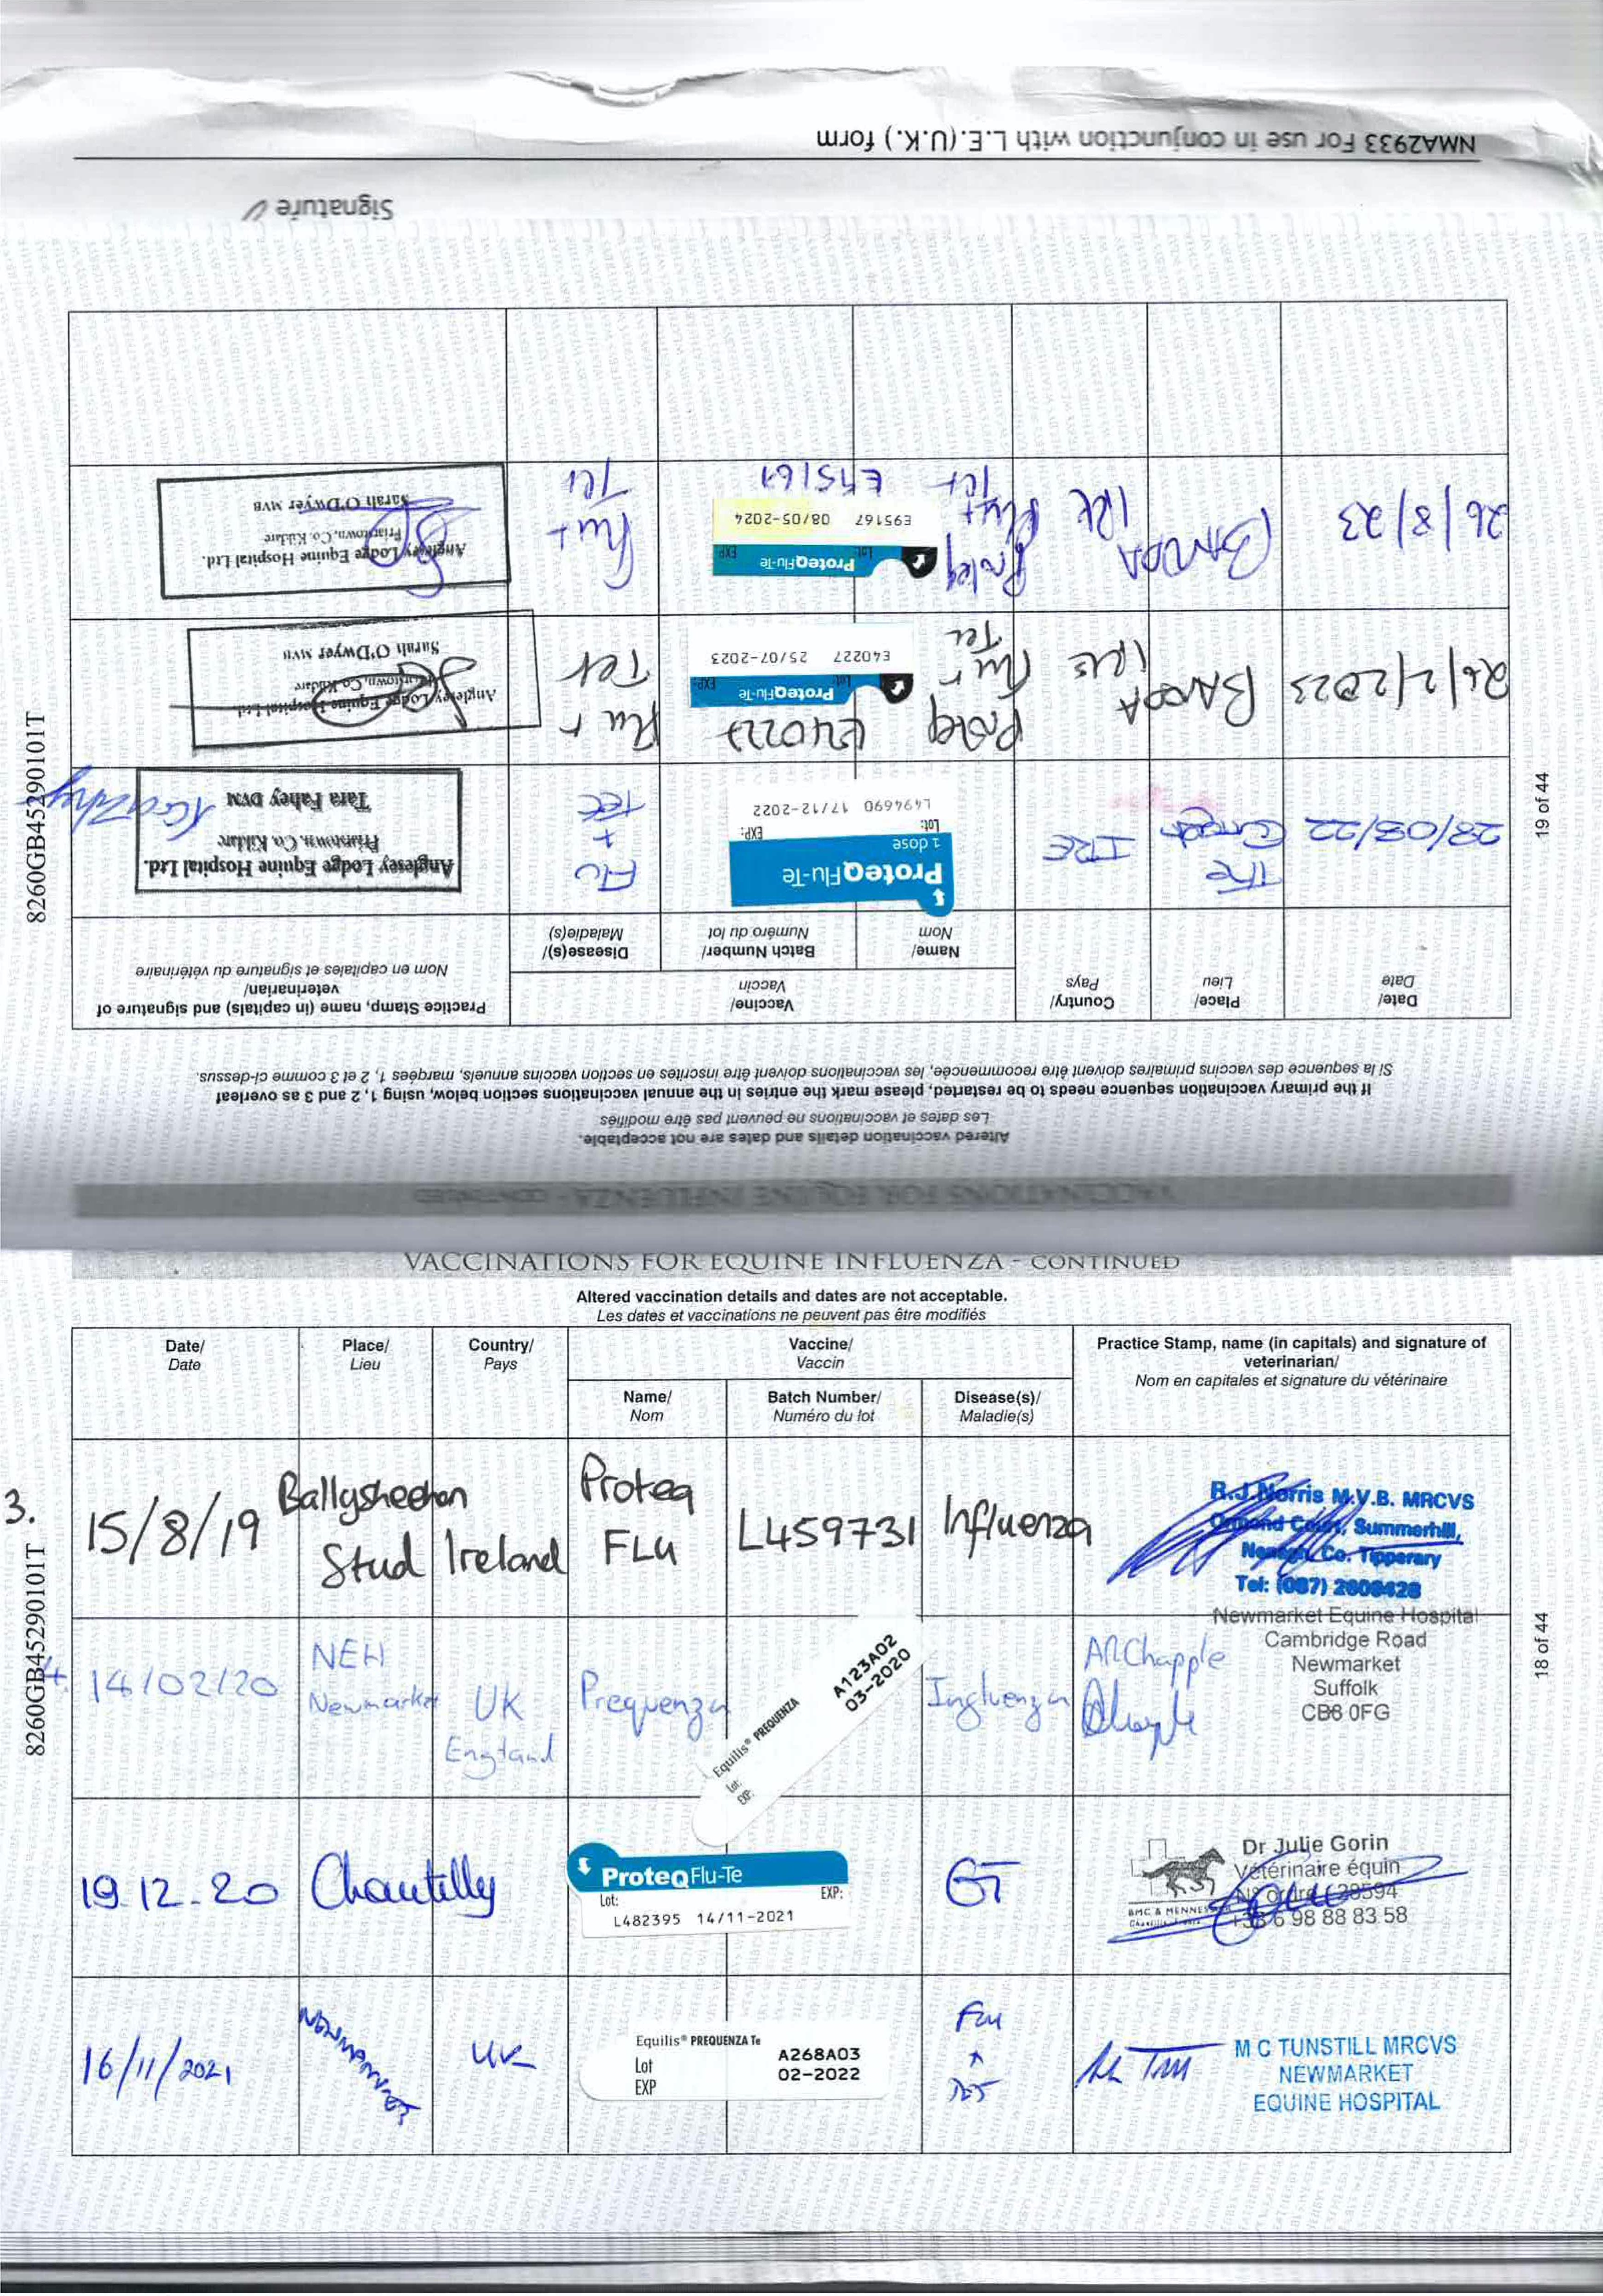 NMA2933 For use in conjunction with L.E.(U.K.) form
Signature
26/8/23
BARODA
IRE
Proteq
Flu +
Tet
ProteqFlu-Te
Lot:
EXP
E95167 08/05-2024
E95167
Flu +
Tet
Anglesey Lodge Equine Hospital Ltd.
Friarstown, Co. Kildare
Sarah O'Dwyer MVB
26/2/2023
BARODA
IRE
Proteq
Flu +
Tet
E40227
ProteqFlu-Te
Lot:
EXP
E40227 25/07-2023
Flu +
Tet
Anglesey Lodge Equine Hospital Ltd
Friarstown, Co. Kildare
Sarah O'Dwyer MVB
28/03/22
The
IRE
ProteqFlu-Te
1 dose
Lot:
EXP:
L494690 17/12-2022
Flu
+
Tet
Anglesey Lodge Equine Hospital Ltd.
Friarstown, Co. Kildare
Tara Fahey DVM
Date/
Date
Place/
Lieu
Country/
Pays
Vaccine/
Vaccin
Name/
Nom
Batch Number/
Numéro du lot
Disease(s)/
Maladie(s)
Practice Stamp, name (in capitals) and signature of
veterinarian/
Nom en capitales et signature du vétérinaire
If the primary vaccination sequence needs to be restarted, please mark the entries in the annual vaccinations section below, using 1, 2 and 3 as overleaf
Si la sequence des vaccins primaires doivent être recommencée, les vaccinations doivent être inscrites en section vaccins annuels, marqées 1, 2 et 3 comme ci-dessus.
Altered vaccination details and dates are not acceptable.
Les dates et vaccinations ne peuvent pas être modifiés
VACCINATIONS FOR EQUINE INFLUENZA - CONTINUED
8260GB45290101T
19 of 44
VACCINATIONS FOR EQUINE INFLUENZA - CONTINUED
Altered vaccination details and dates are not acceptable.
Les dates et vaccinations ne peuvent pas être modifiés
Date/
Date
Place/
Lieu
Country/
Pays
Vaccine/
Vaccin
Name/
Nom
Batch Number/
Numéro du lot
Disease(s)/
Maladie(s)
Practice Stamp, name (in capitals) and signature of
veterinarian/
Nom en capitales et signature du vétérinaire
3.
15/8/19
Ballysheehan
Stud
Ireland
Proteq
FLu
L459731
Influenza
R.J.Norris M.V.B. MRCVS
Ormond Court, Summerhill,
Nenagh, Co. Tipperary
Tel: (087) 2608428
4
14/02/20
NEH
Newmarket
UK
England
Prequenza
Equilis® PREQUENZA
Lot:
EXP:
A123A02
03-2020
Influenza
ARChapple
Newmarket Equine Hospital
Cambridge Road
Newmarket
Suffolk
CB8 0FG
19.12.20
Chantilly
ProteqFlu-Te
Lot:
EXP:
L482395 14/11-2021
GT
Dr Julie Gorin
Vétérinaire équin
N° ordre : 28594
+33 6 98 88 83 58
16/11/2021
NEWMARKET
UK
Equilis® PREQUENZA Te
Lot
EXP
A268A03
02-2022
Flu
+
M C TUNSTILL MRCVS
NEWMARKET
EQUINE HOSPITAL
8260GB45290101T
18 of 44